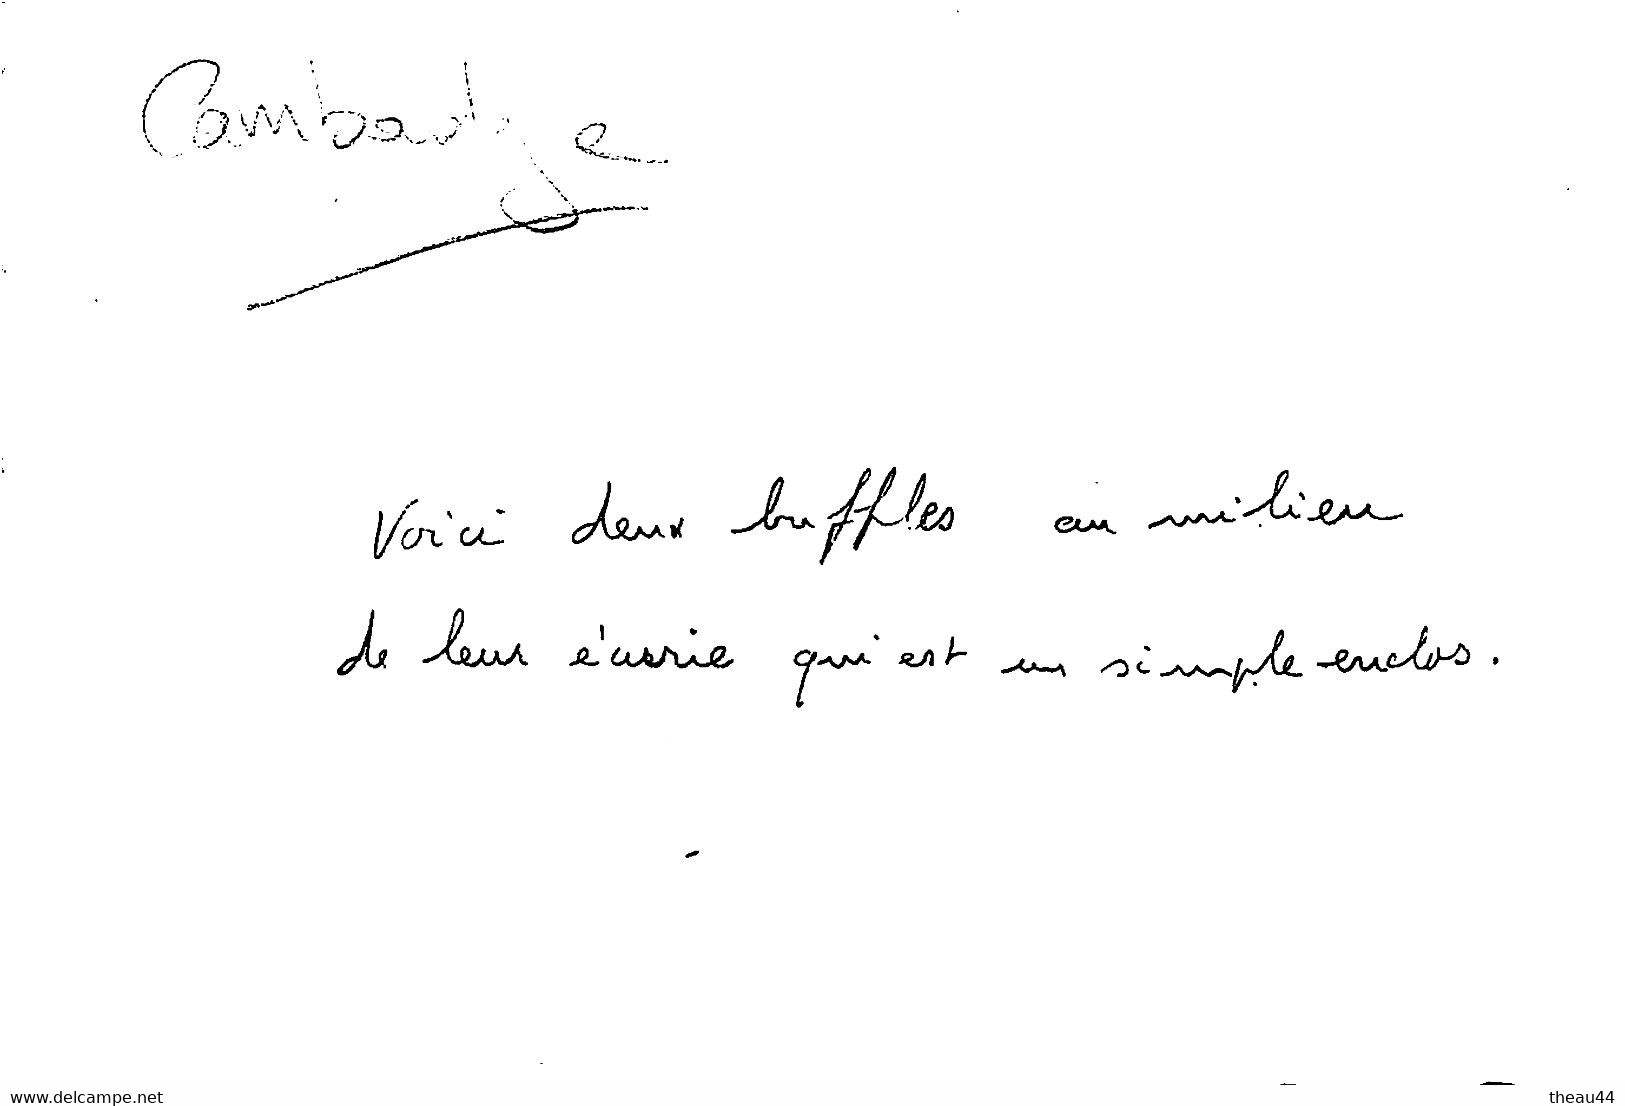 Cambodge
Voici deux buffles au milieu
de leur écurie qui est un simple enclos.
www.delcampe.net
theau44